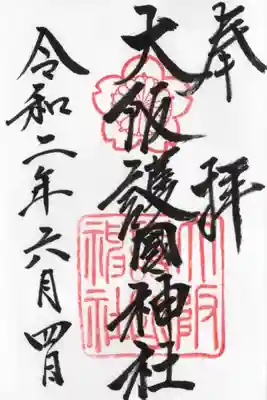 奉拝
大阪護國神社
令和二年六月四日